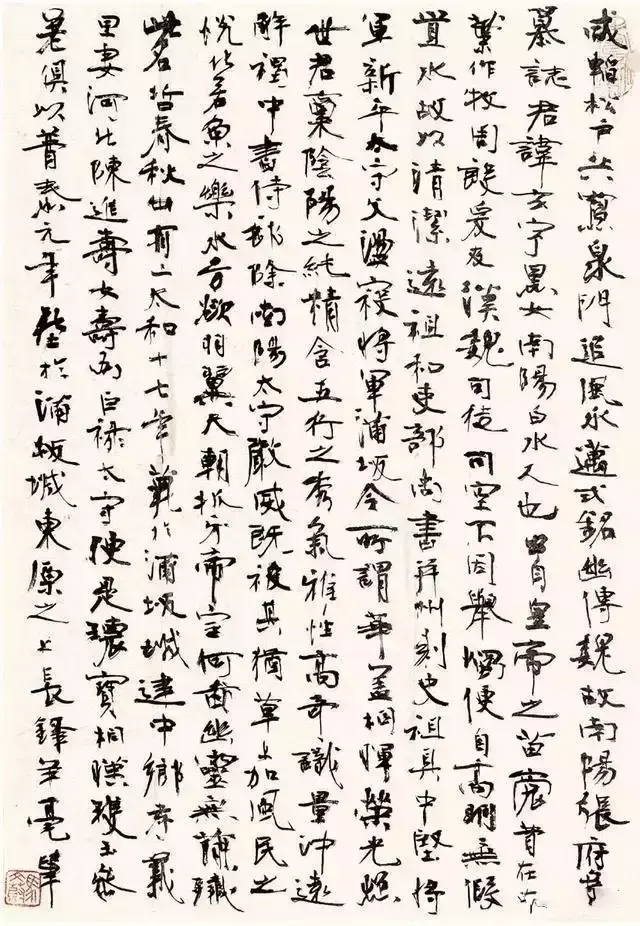 咸韜松戶共寢泉門追風永邁式銘幽傳魏故南陽張府君
墓誌君諱玄字黑女南陽白水人也出自皇帝之苗裔昔在中
葉作牧周殷爰及漢魏司徒司空不因舉燭便自高明無假
置水故以清潔遠祖和吏部尚書并州刺史祖具中堅將
軍新平太守父盪寇將軍蒲坂令所謂華蓋相暉榮光照
世君稟陰陽之純精含五行之秀氣雅性高奇識量沖遠
解褐中書侍郎除南陽太守嚴威既被其猶草上加風民之
悅化若魚之樂水方欲羽翼天朝抓牙帝室何啚幽靈無誦殲
此名哲春秋卅有二太和十七年薨於蒲坂城建中鄉孝義
里妻河北陳進壽女壽為巨祿太守便是瓌寶相暎瓊玉參
差俱以普泰元年葬於蒲坂城東原之上長鋒羊毫筆